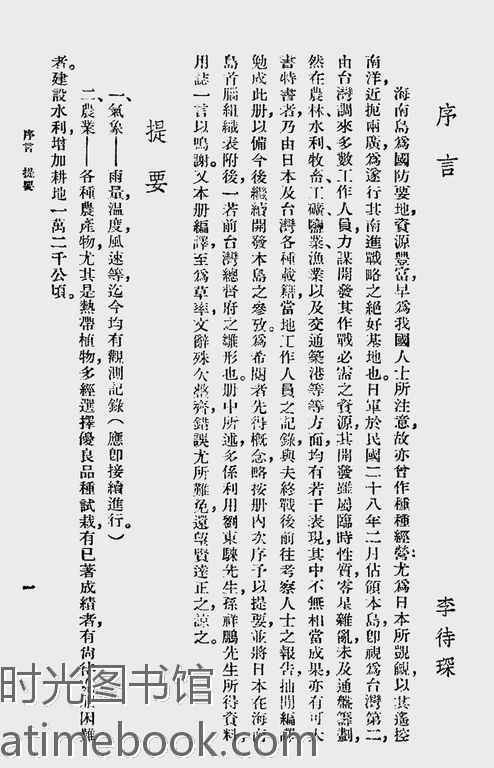 序言
李待琛
海南島爲國防要地,資源豐富,早爲我國人士所注意,故亦曾作種種經營;尤爲日本所覬覦,以其遙控
南洋,近扼兩廣,爲遂行其南進戰略之絕好基地也。日軍於民國二十八年二月佔領本島,卽視爲台灣第二,
由台灣調來多數工作人員,力謀開發其作戰必需之資源,其開發雖屬臨時性質,客是雜亂,未及通盤籌劃,
然在農林、水利、牧畜、工、礦、鹽業、漁業以及交通築港等等方面,均有若干表現,其中不無相當成果,亦有可大
書特書者,乃由日本及台灣各種載籍,當地工作人員之記錄,與夫終戰後前往考察人士之報告,抽閒編譯
勉成此册,以備今後繼續開發本島之參攷。爲希閱者先得概念,略按册內次序予以提要,並將日本在海南
島首腦組織表附後,一若前台灣總督府之雛形也。册中所述,多係利用劉東騄先生,孫祥鵬先生所得資料,
用誌一言以鳴謝。又本册編譯,至爲草率,文辭殊欠整齊,錯誤尤所難免,還望賢達正之諒之。
提要
一、氣象——雨量,溫度,風速等,迄今均有觀測記錄(應卽接續進行。)
二、農業——各種農產物,尤其是熱帶植物,多經選擇優良品種試栽,有已著成績者,有尚待 困難
者。建設水利增加耕地一萬二千公頃。
序言 提要
一
时光图书馆
atimebook.com